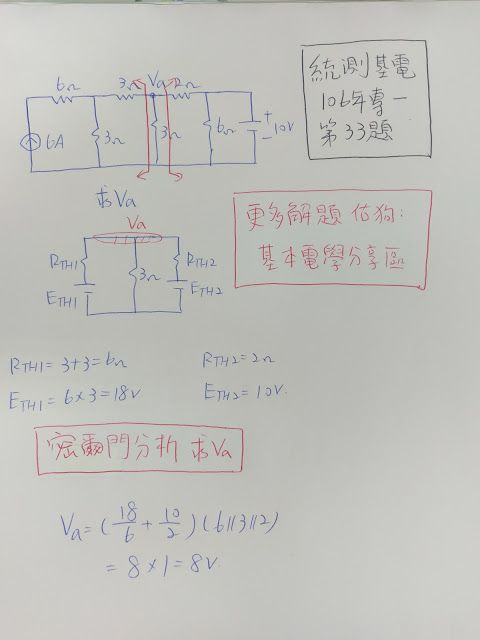 統測基電
106年專一
第33題
6Ω
3Ω
Va
2Ω
6A
3Ω
3Ω
6Ω
+
-
10V
求Va
更多解題 估狗:
基本電學分享區
Va
RTH1
3Ω
RTH2
ETH1
ETH2
RTH1=3+3=6Ω
RTH2=2Ω
ETH1=6×3=18V
ETH2=10V.
密爾門分析 求Va
Va=(18/6+10/2)(6||3||2)
=8×1=8V.